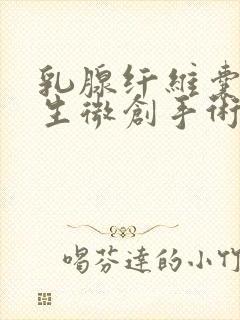 乳腺纤維囊
生微創手術
喝芬達的小竹